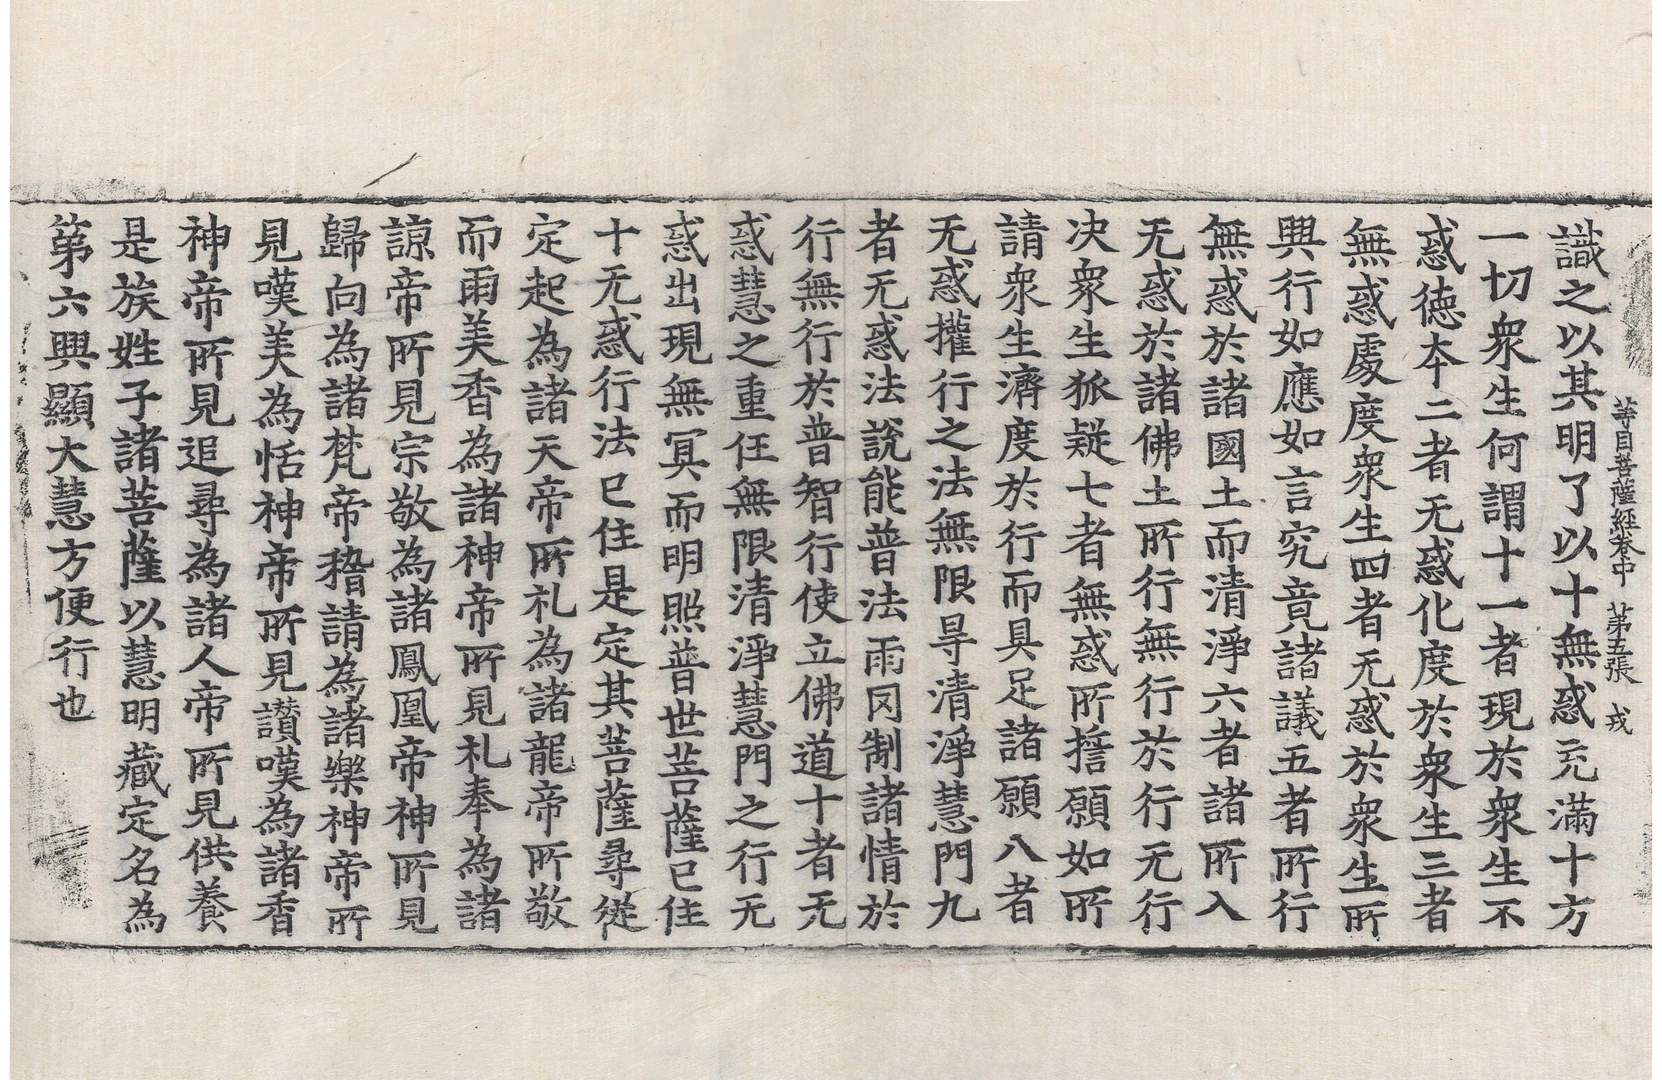 等目菩薩經卷中 第五張 戎
識之以其明了以十無惑充滿十方
一切衆生何謂十一者現於衆生不
惑德本二者无惑化度於衆生三者
無惑處度衆生四者无惑於衆生所
興行如應如言究竟諸議五者所行
無惑於諸國土而清淨六者諸所入
无惑於諸佛土所行無行於行无行
决衆生狐疑七者無惑所擔願如所
請衆生濟度於行而具足諸願八者
无惑權行之法無限㝵清淨慧門九
者无惑法說能普法雨罔制諸情於
行無行於普智行使立佛道十者无
惑慧之重任無限清淨慧門之行无
惑出現無冥而明照普世菩薩已住
十无惑行法已住是定其菩薩尋從
定起為諸天帝所礼為諸龍帝所敬
而雨美香為諸神帝所見礼奉為諸
諒帝所見宗敬為諸鳳凰帝神所見
歸向為諸梵帝稽請為諸樂神帝所
見嘆美為恬神帝所見讃嘆為諸香
神帝所見追尋為諸人帝所見供養
是族姓子諸菩薩以慧明藏定名為
第六興顯大慧方便行也